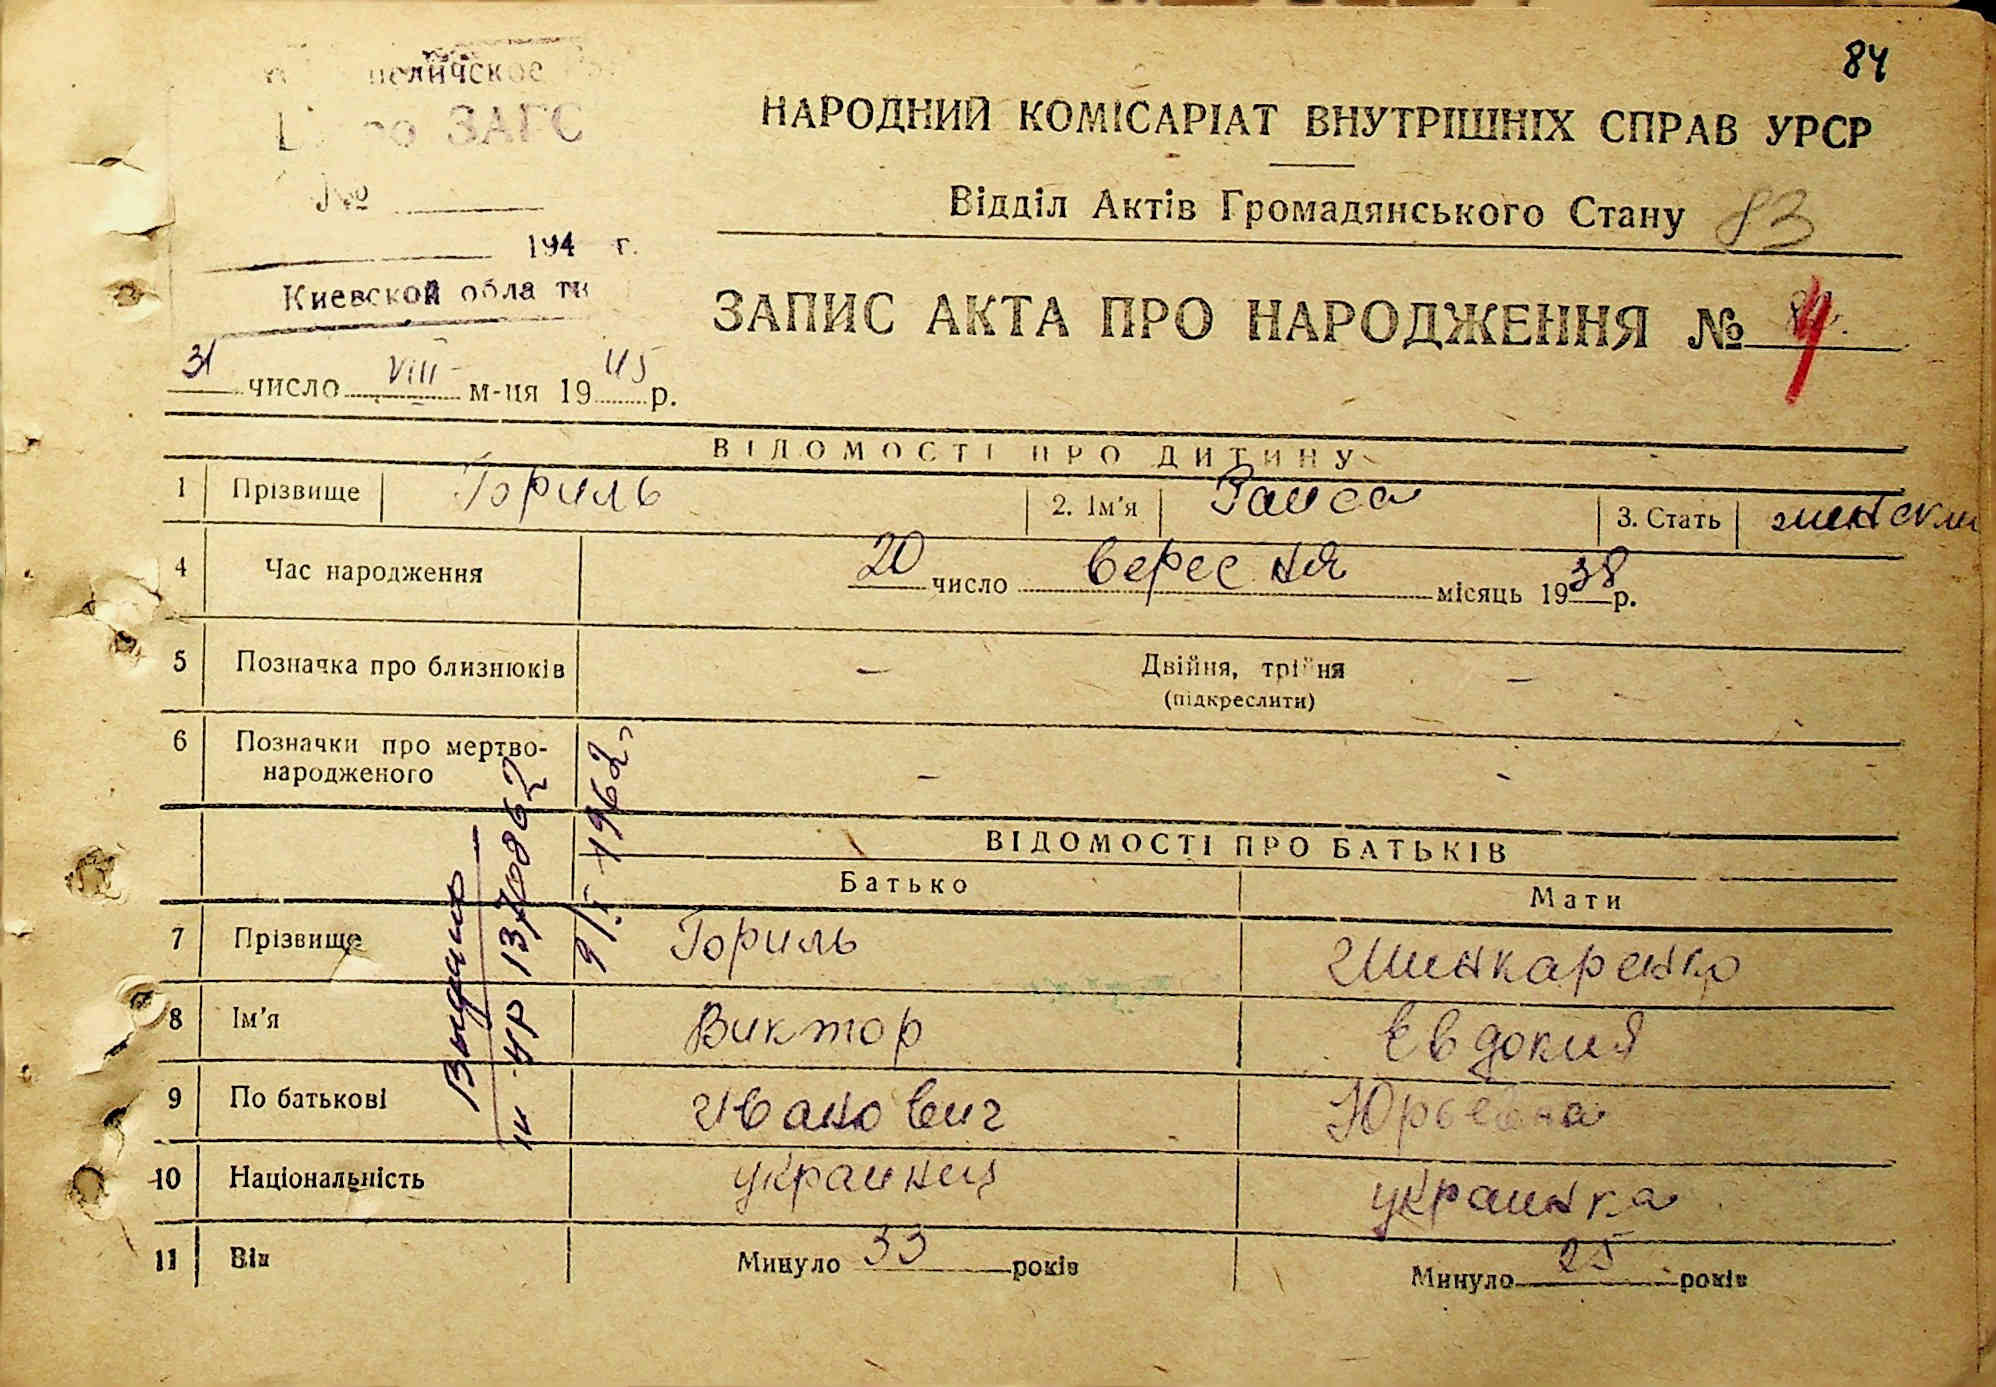 84
НАРОДНИЙ КОМІСАРІАТ ВНУТРІШНІХ СПРАВ УРСР
Відділ Актів Громадянського Стану 83
ЗАГС
№
194 г.
Киевской обла ти
ЗАПИС АКТА ПРО НАРОДЖЕННЯ № 4
31 число VIII м-ця 1945 р.
ВІДОМОСТІ ПРО ДИТИНУ
1 Прізвище Гориль 2. Ім'я Раиса 3. Стать
4 Час народження 20 число вересня місяць 1938 р.
5 Позначка про близнюків — Двійня, трійня —
(підкреслити)
6 Позначки про мертво-
народженого – -
ВІДОМОСТІ ПРО БАТЬКІВ
Батько Мати
7 Прізвище Гориль Шинкаренко
8 Ім'я Виктор Евдокия
9 По батькові Иванович Юрьевна
10 Національність украинец украинка
11 Вік Минуло 33 років Минуло 25 років
Выдано
УР 1370862
9/I-1962